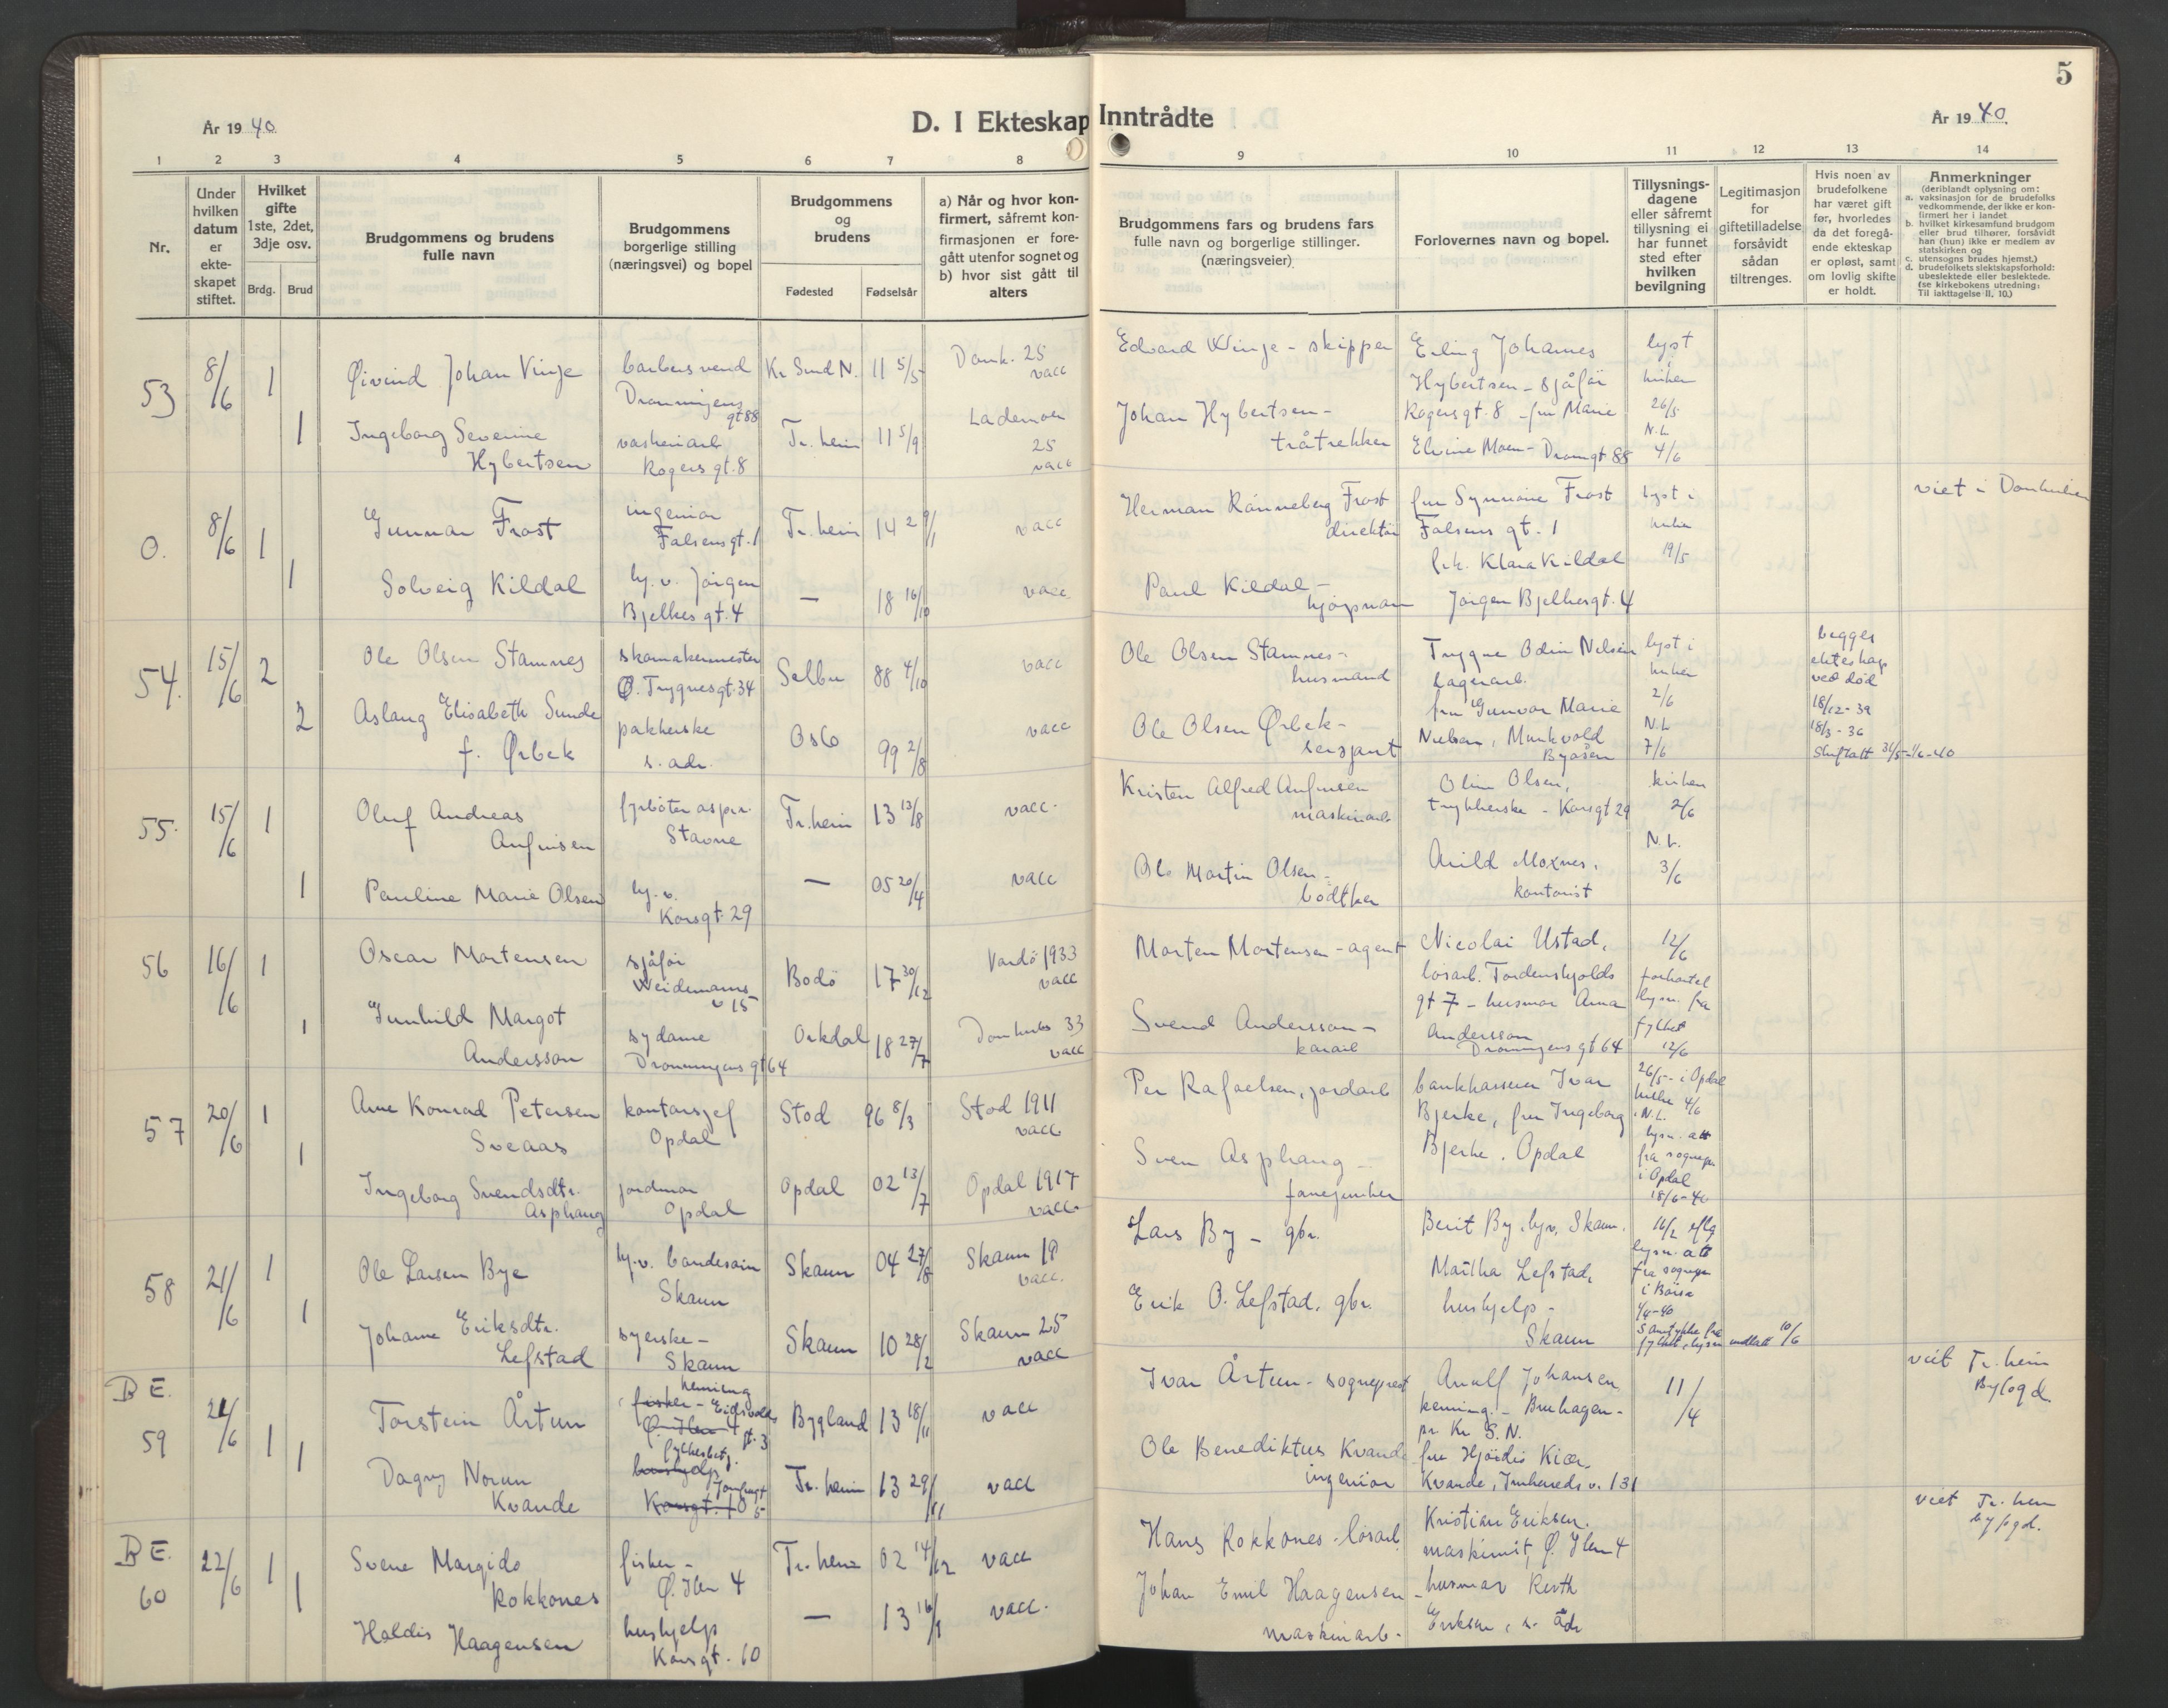 5
År 1940
D. I Ekteskap Inntrådte
År 1940.
1 2 3 4 5 6 7 8 9 10 11 12 13 14
Nr.
Under hvilken datum er ekteskapet stiftet.
Hvilket gifte 1ste, 2det, 3dje osv.
Brdg. Brud
Brudgommens og brudens fulle navn
Brudgommens borgerlige stilling (næringsvei) og bopel
Brudgommens og brudens
Fødested Fødselsår
a) Når og hvor konfirmert, såfremt konfirmasjonen er foregått utenfor sognet og b) hvor sist gått til alters
Brudgommens fars og brudens fars fulle navn og borgerlige stillinger. (næringsveier).
Forlovernes navn og bopel.
Tillysningsdagene eller såfremt tillysning ei har funnet sted efter hvilken bevilgning
Legitimasjon for giftetilladelse forsåvidt sådan tiltrenges.
Hvis noen av brudefolkene har været gift før, hvorledes da det foregående ekteskap er opløst, samt om lovlig skifte er holdt.
Anmerkninger
(deriblandt oplysning om:
a. vaksinasjon for de brudefolks vedkommende, der ikke er konfirmert her i landet
b. hvilket kirkesamfund brudgom eller brud tilhører, forsåvidt han (hun) ikke er medlem av statskirken og
c. utensogns brudes hjemst.)
d. brudefolkets slektskapsforhold: ubeslektede eller beslektede.
(se kirkebokens utredning: Til iakttagelse II, 10.)
53 8/6 1 Øivind Johan Vinje barbersvend Dronningens gt 88 Kr Sund N. 11 5/5 Domk. 25 vacc
Edvard Winje - skipper Erling Johannes Hybertsen - sjåför lyst i kirken 26/5
1 Ingeborg Severine Hybertsen vaskeriarb Rogers gt. 8 Tr.heim 11 5/9 Lademoen 25 vacc
Johan Hybertsen - tråtrekker Rogers gt. 8 - fru Marie Elvine Moen - Dronngt 88 N.L 4/6
O. 8/6 1 Gunnar Frost ingeniør Falsens gt. 1 Tr.heim 14 29/1 vacc
Herman Rønneberg Frost direktør fru Synnøve Frost Falsens gt. 1 lyst i kirken 19/5 viet i Domkirken
1 Solveig Kildal hj. v. Jörgen Bjelkes gt. 4 — 18 16/10 vacc
Paul Kildal - kjøpman frk. Klara Kildal Jörgen Bjelkesgt. 4
54. 15/6 2 Ole Olsen Stamnes skomakermester Ø. Trygvesgt. 34 Selbu 88 4/10 vacc
Ole Olsen Stamnes - husmand Trygve Odin Nelsen lagerarb. lyst i kirken 2/6 begges ekteskap ved död
2 Aslaug Elisabeth Sunde f. Ørbek pakkerske s. adr. Oslo 99 2/8 vacc
Ole Olsen Ørbek - sersjant fru Gunvor Marie Nielsen, Munkvold Byåsen N.L 7/6 18/12-39 18/3-36 skifteatt 31/5-1/6-40
55. 15/6 1 Oluf Andreas Anfinsen fyrböter aspir. Stavne Tr.heim 13 13/8 vacc.
Kristen Alfred Anfinsen maskinarb Olise Olsen, trykkerske - Korsgt 29 kirken 2/6
1 Pauline Marie Olsen hj. v. Korsgt. 29 — 05 20/4 vacc
Ole Martin Olsen - bödtker Arild Moxnes, kontorist N.L. 3/6
56 16/6 1 Oscar Mortensen sjåför Weidemanns v 15 Bodö 17 30/12 Vardö 1933 vacc
Morten Mortensen - agent Nicolai Ustad, lösarb. Tordenskjolds gt 7 - husmor Anna Andersson Dronningens gt 64 12/6 forkortet lysn. fra fylket 12/6
1 Gunhild Margot Andersson sydame Dronningens gt 64 Orkdal 18 27/7 Domkirk 33 vacc
Svend Andersson - kaiarb
57 20/6 1 Arne Konrad Petersen Sveaas kontorsjef Opdal Stod 96 8/3 Stod 1911 vacc
Per Rafaelsen, jordarb bankkasserer Ivar Bjerke, fru Ingeborg Bjerke. Opdal 26/5 - i Opdal kirke 4/6 i N.L. lysn. att fra sognepr. i Opdal 18/6-40
1 Ingeborg Svendsdtr. Asphaug jordmor Opdal Opdal 02 13/7 Opdal 1917 vacc.
Sven Asphaug - fanejunker
58 21/6 1 Ole Larsen Bye hj. v. landesein Skaun Skaun 04 27/8 Skaun 19 vacc.
Lars By - gbr. Berit By, hjv. Skaun. 11/2 eflg lysn. att fra sognepr i Börsa 4/4-40
1 Johanne Eriksdtr. Lefstad syerske - Skaun Skaun 10 28/2 Skaun 25 vacc
Erik O. Lefstad, gbr. Martha Lefstad, hushjelp - Skaun Samtykke fra fylket, lysn innlatt 10/6
B E.
59 21/6 1 Torstein Årtun fisker - kemineg Eidsvolds gt. 3 Ø. Ilen 4 Bygland 13 18/11 vacc
Ivar Årtun - sogneprest Arnulf Johansen keming. - Bruhagen - pr Kr. S. N. 11/4 viet Tr.heim Byfogd.
1 Dagny Norun Kvande hushjelp fylkesbetj. Korsgt. 10 Jomfrugt 5 Tr.heim 13 29/11 vacc
Ole Benediktus Kvande ingeniør fru Hjördis Kiær Kvande, Innhereds v. 131
B E.
60 22/6 1 Svene Margido Rokkones fisker - Ø. Ilen 4 Tr.heim 02 14/12 vacc
Hans Rokkones - lösarb. Kristian Eriksen, maskinist, Ø. Ilen 4 viet Tr.heim byfogd.
1 Haldis Haagensen hushjelp Korsgt. 10 — 13 16/1 vacc.
Johan Emil Haagensen - maskinarb. husmor Ruth Eriksen, s. adr